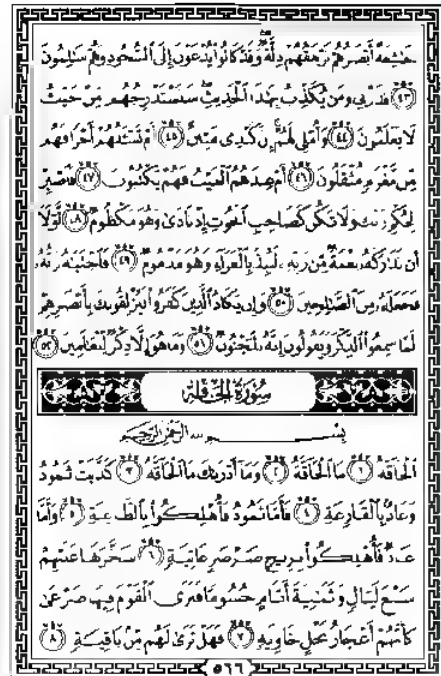 خَٰشِعَةً أَبْصَٰرُهُمْ تَرْهَقُهُمْ ذِلَّةٌ وَقَدْ كَانُوا۟ يُدْعَوْنَ إِلَى ٱلسُّجُودِ وَهُمْ سَٰلِمُونَ
٤٣ فَذَرْنِي وَمَن يُكَذِّبُ بِهَٰذَا ٱلْحَدِيثِ سَنَسْتَدْرِجُهُم مِّنْ حَيْثُ
لَا يَعْلَمُونَ ٤٤ وَأُمْلِي لَهُمْ إِنَّ كَيْدِي مَتِينٌ ٤٥ أَمْ تَسْـَٔلُهُمْ أَجْرًا فَهُم
مِّن مَّغْرَمٍ مُّثْقَلُونَ ٤٦ أَمْ عِندَهُمُ ٱلْغَيْبُ فَهُمْ يَكْتُبُونَ ٤٧ فَٱصْبِرْ
لِحُكْمِ رَبِّكَ وَلَا تَكُن كَصَاحِبِ ٱلْحُوتِ إِذْ نَادَىٰ وَهُوَ مَكْظُومٌ ٤٨ لَّوْلَا
أَن تَدَٰرَكَهُۥ نِعْمَةٌ مِّن رَّبِّهِۦ لَنُبِذَ بِٱلْعَرَآءِ وَهُوَ مَذْمُومٌ ٤٩ فَٱجْتَبَٰهُ رَبُّهُۥ
فَجَعَلَهُۥ مِنَ ٱلصَّٰلِحِينَ ٥٠ وَإِن يَكَادُ ٱلَّذِينَ كَفَرُوا۟ لَيُزْلِقُونَكَ بِأَبْصَٰرِهِمْ
لَمَّا سَمِعُوا۟ ٱلذِّكْرَ وَيَقُولُونَ إِنَّهُۥ لَمَجْنُونٌ ٥١ وَمَا هُوَ إِلَّا ذِكْرٌ لِّلْعَٰلَمِينَ ٥٢
سُورَةُ الْحَاقَّةِ
بِسْمِ ٱللَّهِ ٱلرَّحْمَٰنِ ٱلرَّحِيمِ
ٱلْحَآقَّةُ ١ مَا ٱلْحَآقَّةُ ٢ وَمَآ أَدْرَىٰكَ مَا ٱلْحَآقَّةُ ٣ كَذَّبَتْ ثَمُودُ
وَعَادٌۢ بِٱلْقَارِعَةِ ٤ فَأَمَّا ثَمُودُ فَأُهْلِكُوا۟ بِٱلطَّاغِيَةِ ٥ وَأَمَّا
عَادٌ فَأُهْلِكُوا۟ بِرِيحٍ صَرْصَرٍ عَاتِيَةٍ ٦ سَخَّرَهَا عَلَيْهِمْ
سَبْعَ لَيَالٍ وَثَمَٰنِيَةَ أَيَّامٍ حُسُومًا فَتَرَى ٱلْقَوْمَ فِيهَا صَرْعَىٰ
كَأَنَّهُمْ أَعْجَازُ نَخْلٍ خَاوِيَةٍ ٧ فَهَلْ تَرَىٰ لَهُم مِّنۢ بَاقِيَةٍ ٨
٥٦٦